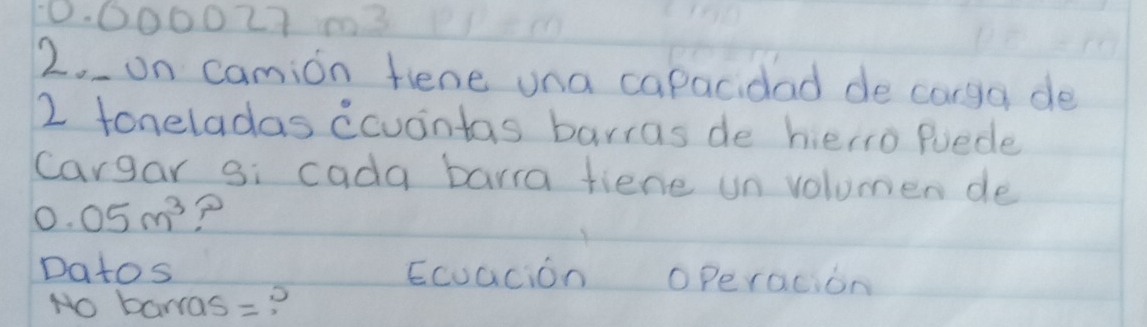 0.000027 m3
2._ Un camión tiene una capacidad de carga de
2 toneladas ¿cuántas barras de hierro Puede
Cargar si cada barra tiene un volumen de
0.05 m³?
Datos Ecuación OPeración
No barras = ?